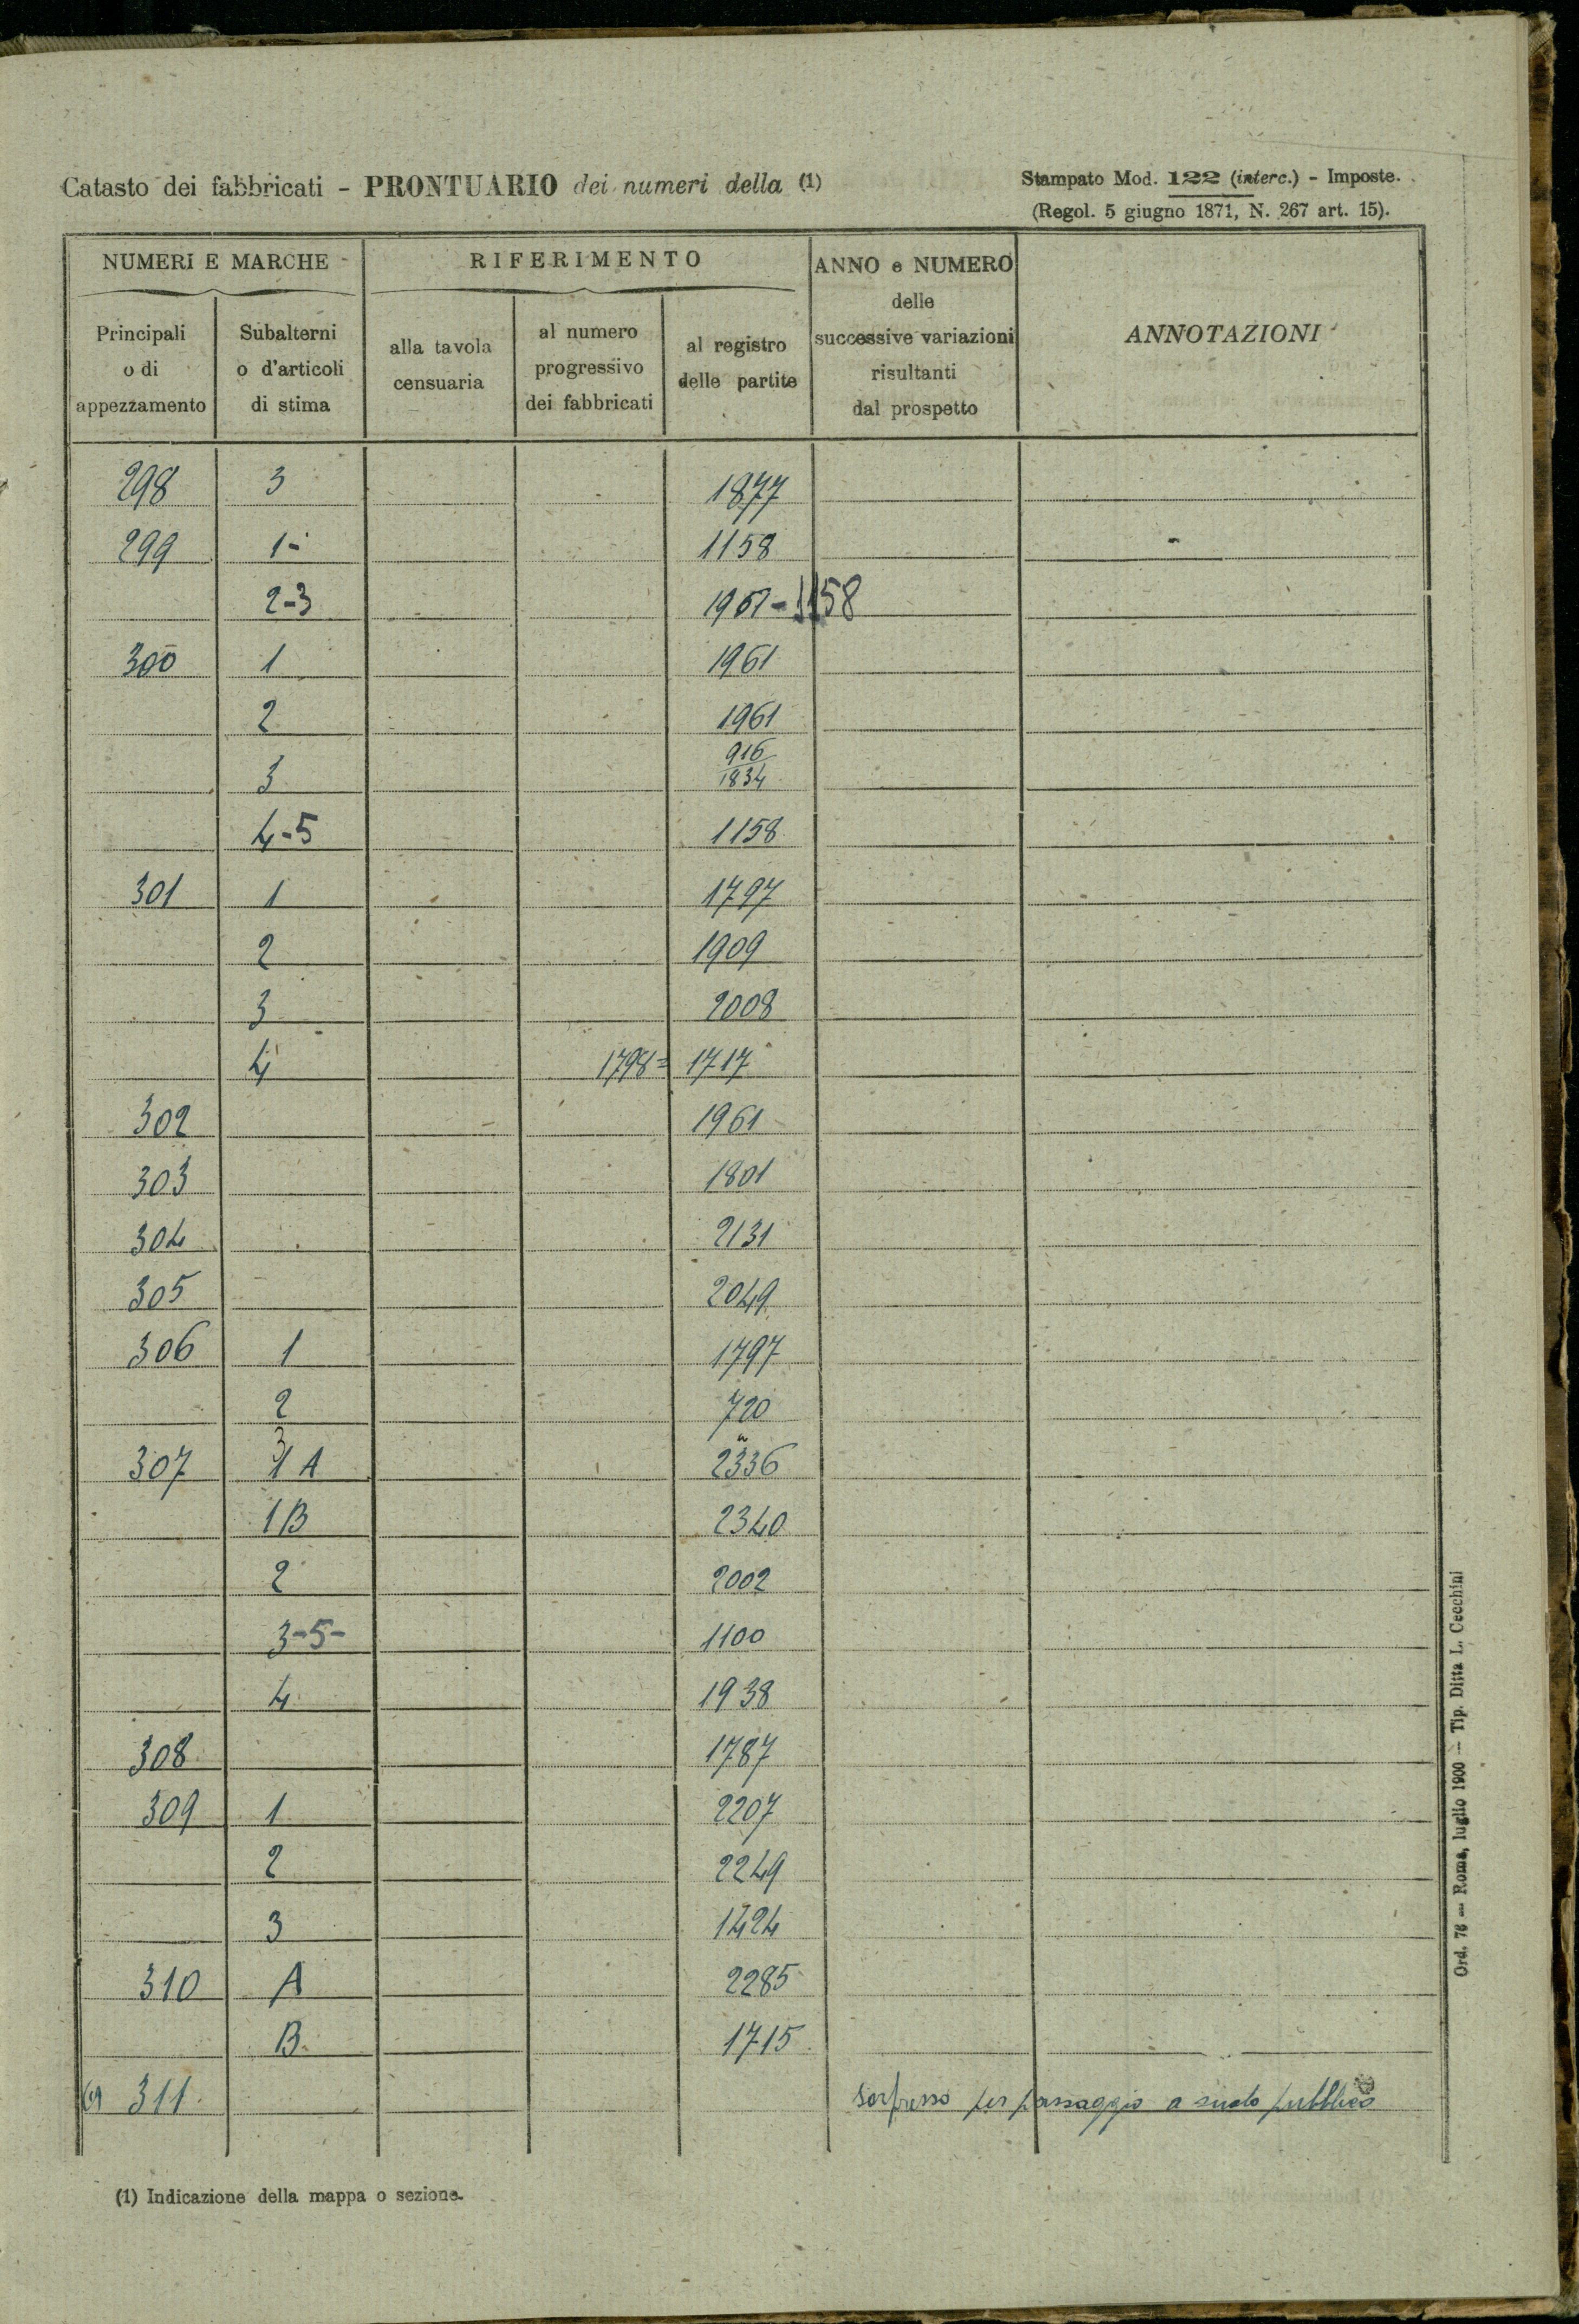 Catasto dei fabbricati - PRONTUARIO dei numeri della (1)
Stampato Mod. 122 (interc.) - Imposte.
(Regol. 5 giugno 1871, N. 267 art. 15).
NUMERI E MARCHE
RIFERIMENTO
ANNO e NUMERO
delle
successive variazioni
risultanti
dal prospetto
ANNOTAZIONI
Principali
o di
appezzamento
Subalterni
o d'articoli
di stima
alla tavola
censuaria
al numero
progressivo
dei fabbricati
al registro
delle partite
298 3 1877
299 1- 1158
2-3 1961-1158
300 1 1961
2 1961
3 916
1834
4-5 1158
301 1 1797
2 1909
3 2008
4 1798= 1717
302 1961
303 1801
304 2131
305 2049
306 1 1797
2 720
3 "
307 1 A 2336
1 B 2340
2 2002
3-5- 1100
4 1938
308 1787
309 1 2207
2 2249
3 1424
310 A 2285
B 1715
311 per passaggio a suolo pubblico
(1) Indicazione della mappa o sezione.
Ord. 76 — Roma, luglio 1900 — Tip. Ditta L. Cecchini